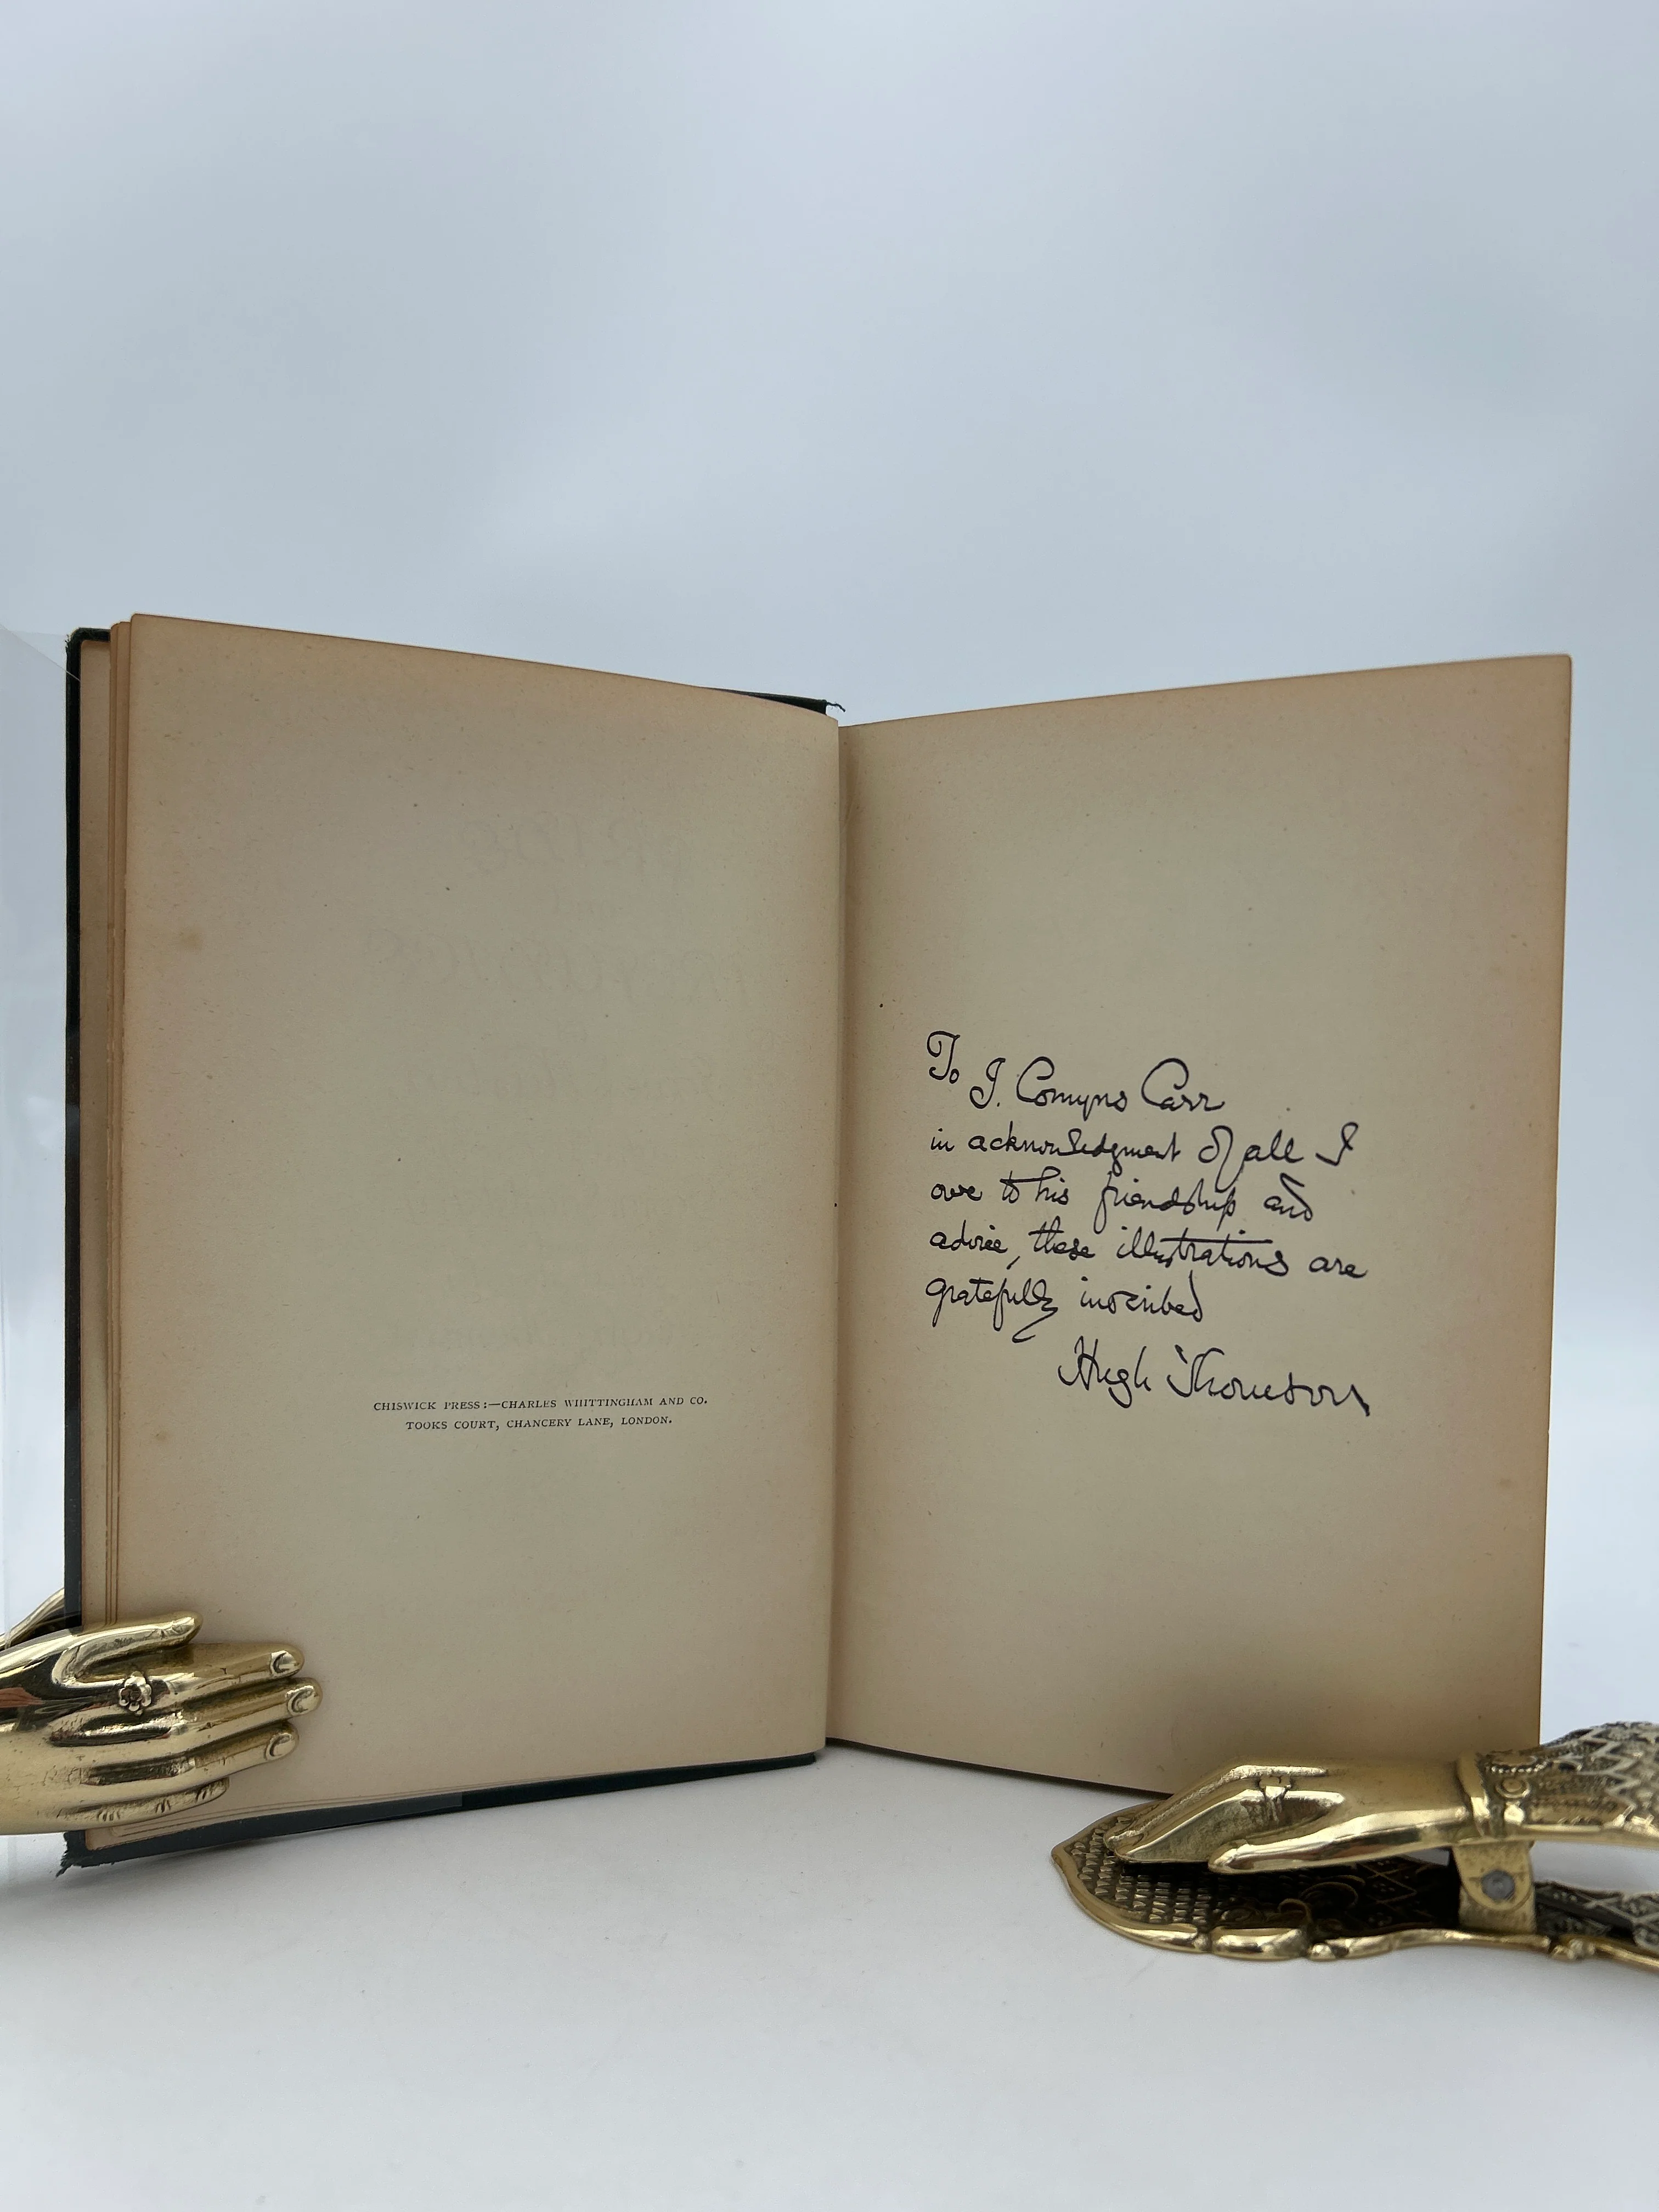 CHISWICK PRESS:—CHARLES WHITTINGHAM AND CO.
TOOKS COURT, CHANCERY LANE, LONDON.
To
J. Comyns Carr
in acknowledgment of all I
owe to his friendship and
advice, these illustrations are
gratefully inscribed
Hugh Thomson